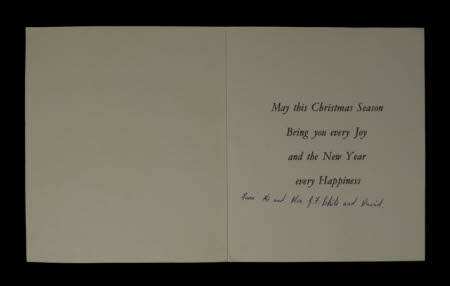 May this Christmas Season
Bring you every Joy
and the New Year
every Happiness
From Mr and Mrs J.F. White and David.